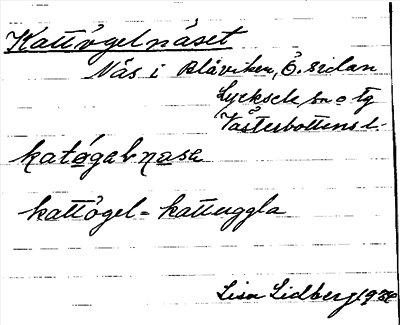 Kattögelnäset
Näs i Blåviken, Ö. sidan
Lycksele sn o tg
Västerbottens l.
katǿgəlnasə
kattögel = kattuggla
Lisa Lidberg 1936